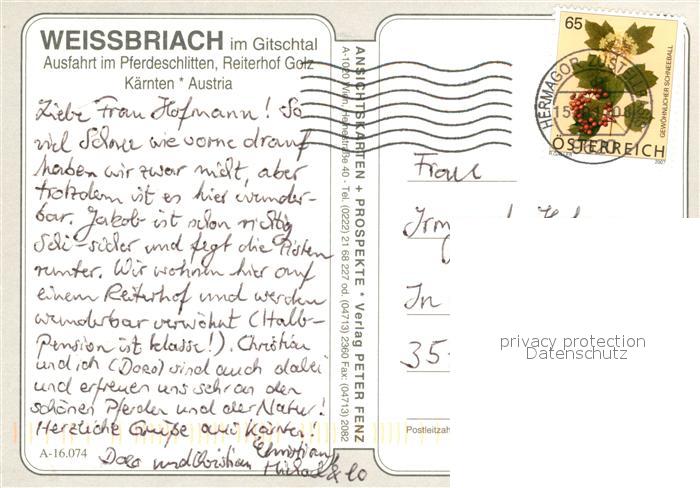 WEISSBRIACH im Gitschtal
Ausfahrt im Pferdeschlitten, Reiterhof Golz
Kärnten * Austria
Liebe Frau Hofmann! So
viel Schnee wie vorne drauf
haben wir zwar nicht, aber
trotzdem ist es hier wunder-
bar. Jakob ist schon richtig
Schi-sicher und fegt die Pisten
runter. Wir wohnen hier auf
einem Reiterhof und werden
wunderbar verwöhnt (Halb-
pension ist klasse!). Christian
und ich (Doro) sind auch dabei
und erfreuen uns sehr an den
schönen Pferden und der Natur!
Herzliche Grüße aus Kärnten!
Doro und Christian
Christian
& Co
A-16.074
ANSICHTSKARTEN + PROSPEKTE * Verlag PETER FENZ
A-1020 Wien, Heinestraße 40 - Tel. (0222) 21 68 227 od. (04713) 2360 Fax: (04713) 2082
65
GEWÖHNLICHER SCHNEEBALL
ÖSTERREICH
2007
HERMAGOR ZUSTELL
Frau
In
35
Postleitzahl
privacy protection
Datenschutz